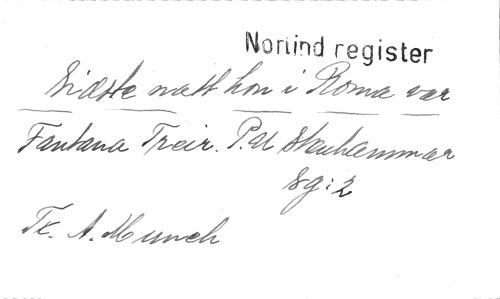 Norind register
Sidste natt hon i Roma var
Fontana Treir. P.A Skuhammar
sg: 2
Tk. A. Munch